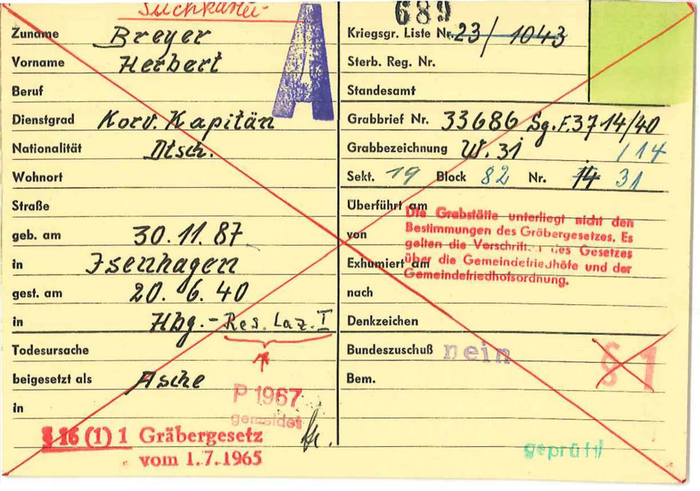 Suchkartei
A
Zuname Breyer
Vorname Herbert
Beruf
Dienstgrad Korv. Kapitän
Nationalität Dtsch.
Wohnort
Straße
geb. am 30.11.87
in Isenhagen
gest. am 20.6.40
in Hbg.-Res. Laz. I
Todesursache
beigesetzt als Asche
in
P 1967
gemeldet
§ 16 (1) 1 Gräbergesetz
vom 1.7.1965
689
Kriegsgr. Liste Nr. 23/1043
Sterb. Reg. Nr.
Standesamt
Grabbrief Nr. 33686 Sg.F.3714/40
Grabbezeichnung W. 31 114
Sekt. 19 Block 82 Nr. 14 31
Überführt am
von
Exhumiert am
nach
Denkzeichen
Die Grabstätte unterliegt nicht den
Bestimmungen des Gräbergesetzes. Es
gelten die Vorschrift des Gesetzes
über die Gemeindefriedhöfe und der
Gemeindefriedhofsordnung.
Bundeszuschuß nein
§ 1
Bem.
geprüft